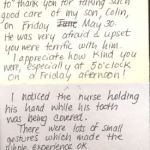 to thank you for taking such
good care of my son, Colin,
on Friday May 30.
He was very afraid & upset
you were terrific with him.
I appreciate how kind you
were, especially at 5 o'clock
on a Friday afternoon!
I noticed the nurse holding
his hand while his tooth
was being covered.
There were lots of small
gestures which made the
whole experience ok